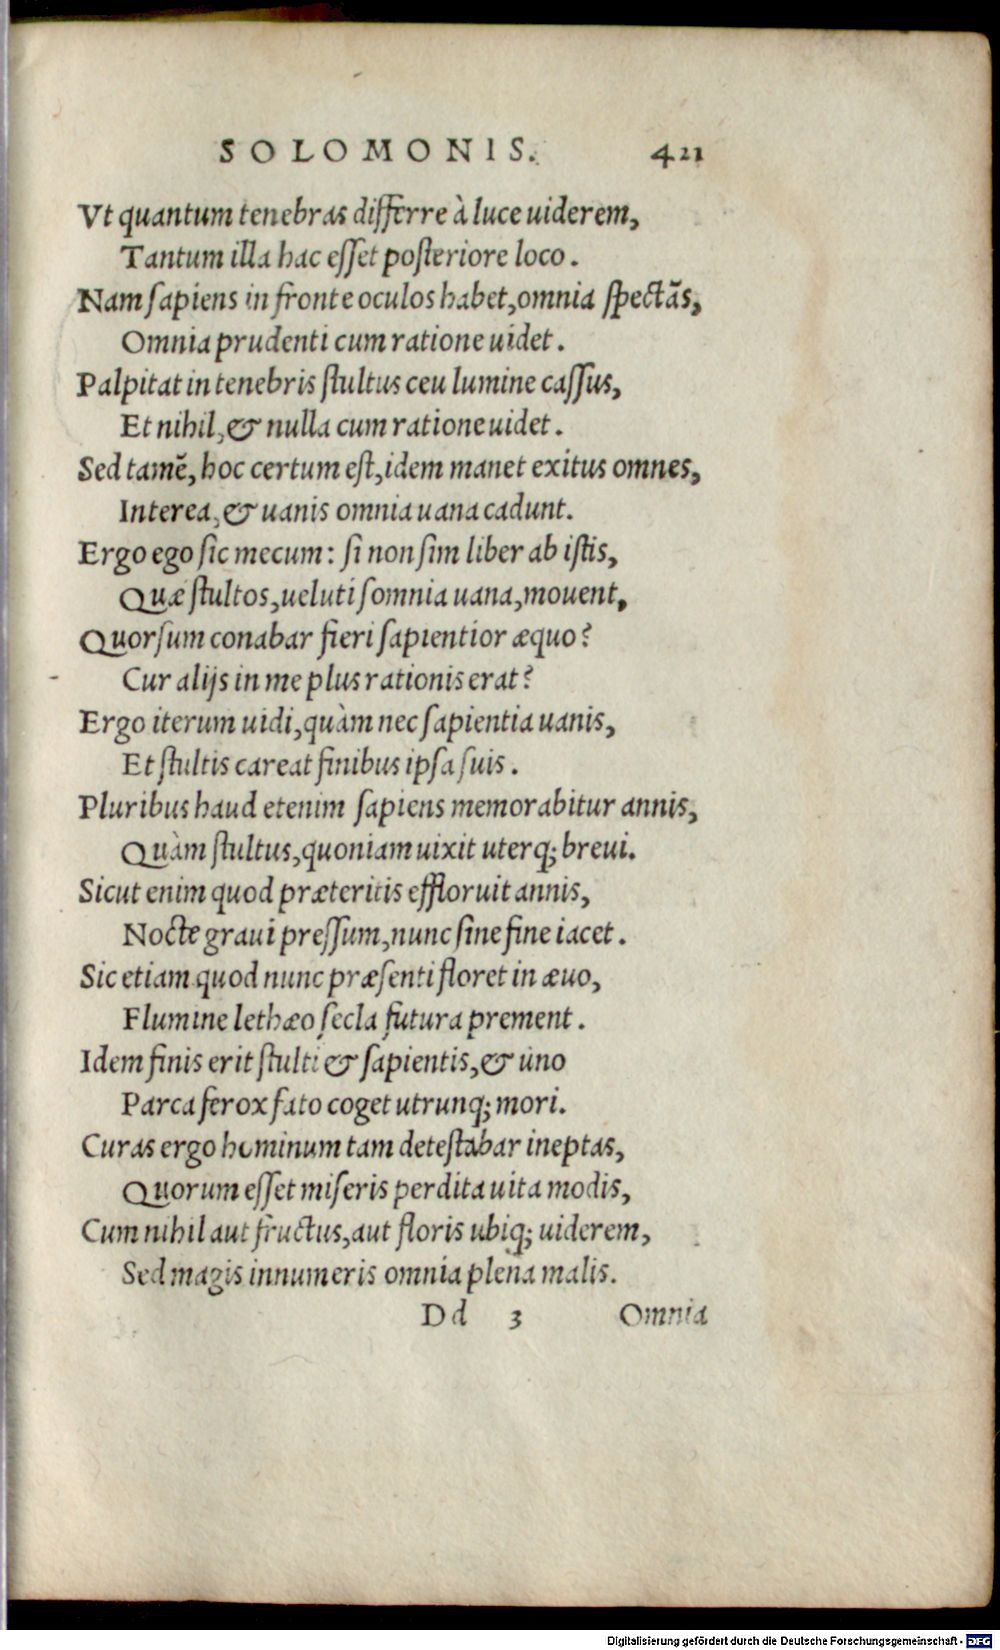 SOLOMONIS. 421
Vt quantum tenebras differre à luce uiderem,
Tantum illa hac esset posteriore loco.
Nam sapiens in fronte oculos habet, omnia spectãs,
Omnia prudenti cum ratione uidet.
Palpitat in tenebris stultus ceu lumine cassus,
Et nihil, & nulla cum ratione uidet.
Sed tamẽ, hoc certum est, idem manet exitus omnes,
Interea, & uanis omnia uana cadunt.
Ergo ego sic mecum: si non sim liber ab istis,
Quæ stultos, ueluti somnia uana, mouent,
Quorsum conabar fieri sapientior æquo?
Cur alijs in me plus rationis erat?
Ergo iterum uidi, quàm nec sapientia uanis,
Et stultis careat finibus ipsa suis.
Pluribus haud etenim sapiens memorabitur annis,
Quàm stultus, quoniam uixit uterq; breui.
Sicut enim quod præteritis effloruit annis,
Nocte graui pressum, nunc sine fine iacet.
Sic etiam quod nunc præsenti floret in æuo,
Flumine lethæo secla futura prement.
Idem finis erit stulti & sapientis, & uno
Parca ferox fato coget utrunq; mori.
Curas ergo hominum tam detestabar ineptas,
Quorum esset miseris perdita uita modis,
Cum nihil aut fructus, aut floris ubiq; uiderem,
Sed magis innumeris omnia plena malis.
Dd 3 Omnia
Digitalisierung gefördert durch die Deutsche Forschungsgemeinschaft - DFG